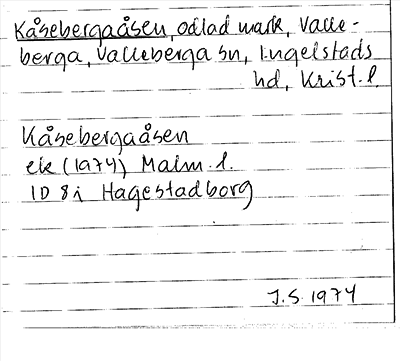 Kåsebergaåsen, odlad mark, Valle-
berga, Valleberga sn, Ingelstads
hd, Krist. l.
Kåsebergaåsen
ek (1974) Malm. l.
1D 8i Hagestadborg
J.S. 1974